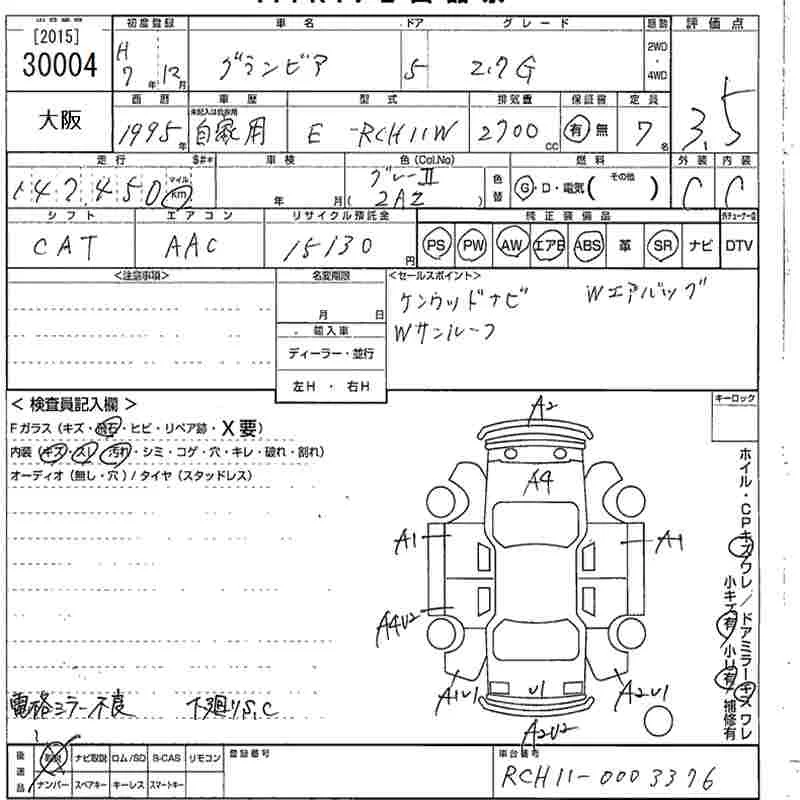 [2015] 初度登録 車名 ドア グレード 評価点
30004 H 7年 12月 グランビア 5 2.7G 2WD・4WD 3.5
大阪 西暦 車歴 型式 排気量 保証書 定員
1995年 自家用 E -RCH11W 2700cc 有 無 7名
走行 $#* 車検 色(Col.No) 燃料 外装 内装
147,450 マイル km 年 月 グレーII (2AZ) 色替 G・D・電気( その他 ) C C
シフト エアコン リサイクル預託金 純正装備品
CAT AAC 15130円 PS PW AW エアB ABS 革 SR ナビ DTV
<注意事項> 名変期限 <セールスポイント>
月 日 ケンウッドナビ Wエアバッグ
輸入車 Wサンルーフ
ディーラー・並行
左H・右H
<検査員記入欄> キーロック
Fガラス(キズ・飛石・ヒビ・リペア跡・X要)
内装(キズ・スレ・汚れ・シミ・コゲ・穴・キレ・破れ・割れ)
オーディオ(無し・穴)/タイヤ(スタッドレス)
A2
A4
A1 A1
A4U2
A1U1 U1 A2U1
A2U2
ホイル・CPキズワレ/ドアミラーキズワレ
小キズ有 小U有 補修有
電格ミラー不良 下廻りS,C
後送品 取説 ナビ取説 ロム/SD B-CAS リモコン 登録番号 車台番号
ナンバー スペアキー キーレス スマートキー RCH11-0003376